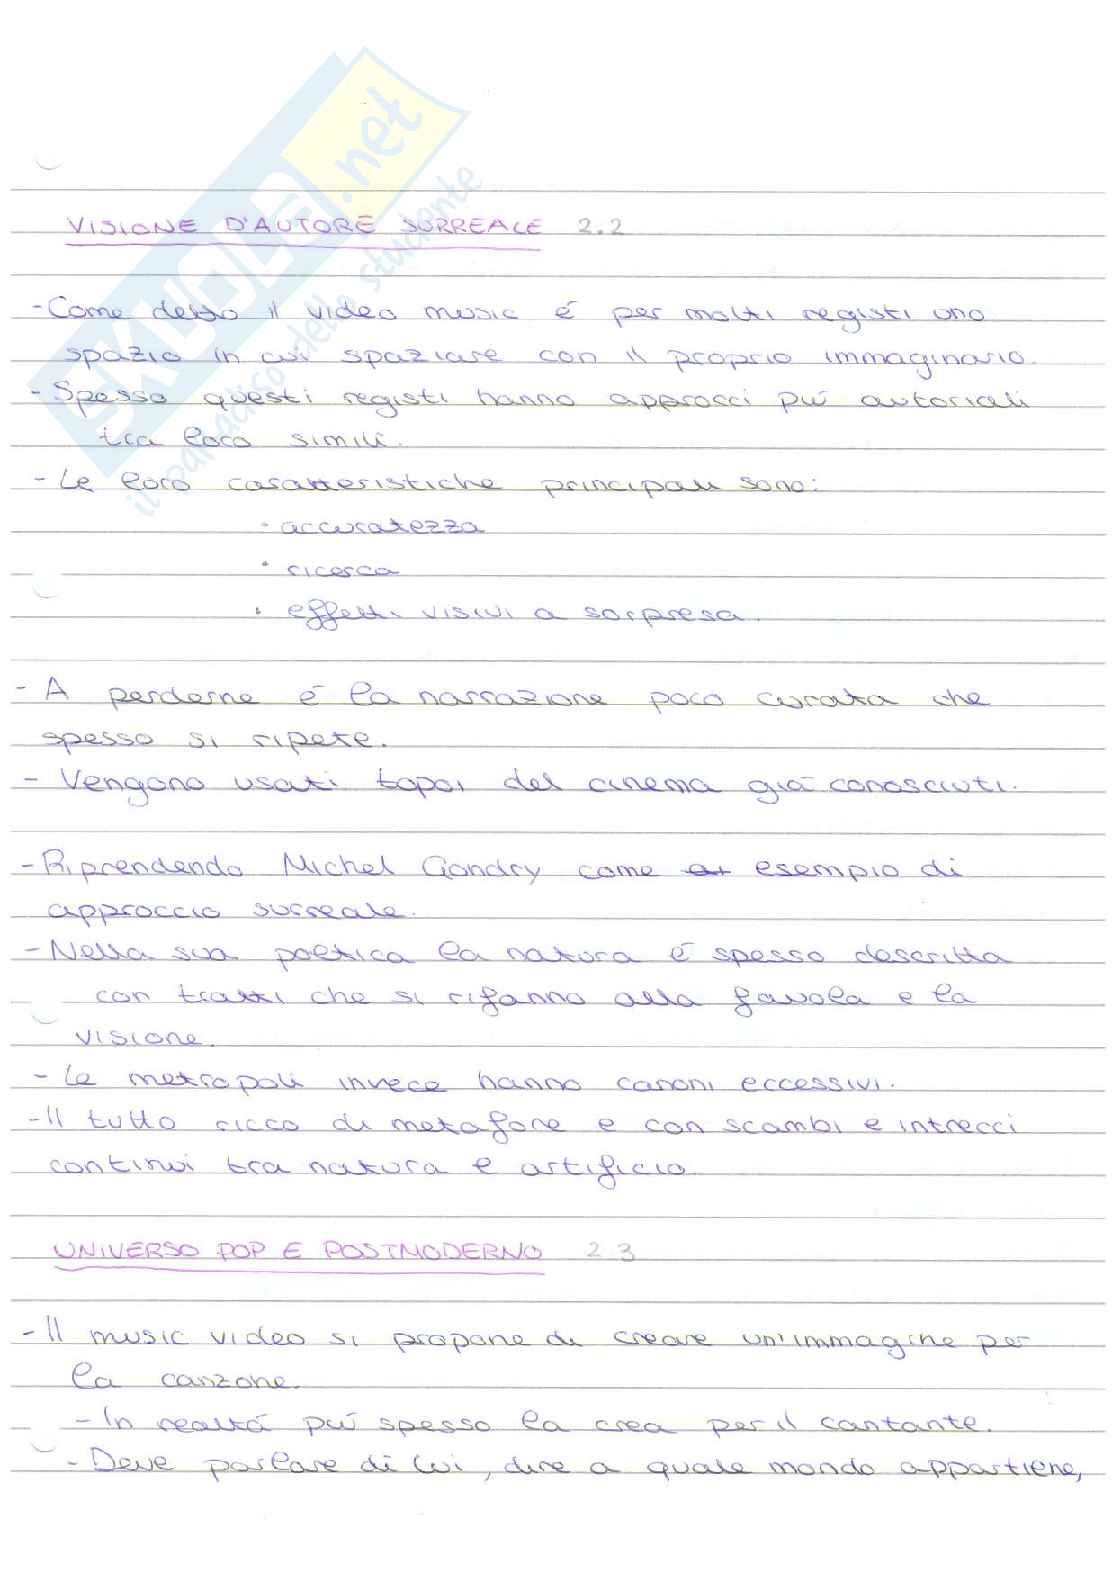 SKUOLA.net
il paradiso dello studente
VISIONE D'AUTORE SURREALE 2.2
- Come detto il video music é per molti registi uno
spazio in cui spaziare con il proprio immaginario.
- Spesso questi registi hanno approcci più autoriali
tra loro simili.
- Le loro caratteristiche principali sono:
- accuratezza
• ricerca
• effetti visivi a sorpresa.
- A perderne é la narrazione poco curata che
spesso si ripete.
- Vengono usati topoi del cinema già conosciuti.
- Riprendendo Michel Gondry come esempio di
approccio surreale.
- Nella sua poetica la natura é spesso descritta
con tratti che si rifanno alla favola e la
visione.
- Le metropoli invece hanno canoni eccessivi.
- Il tutto ricco di metafore e con scambi e intrecci
continui tra natura e artificio
UNIVERSO POP E POSTMODERNO 2.3
- Il music video si propone di creare un'immagine per
la canzone.
- In realtá più spesso la crea per il cantante.
- Deve parlare di lui, dire a quale mondo appartiene,